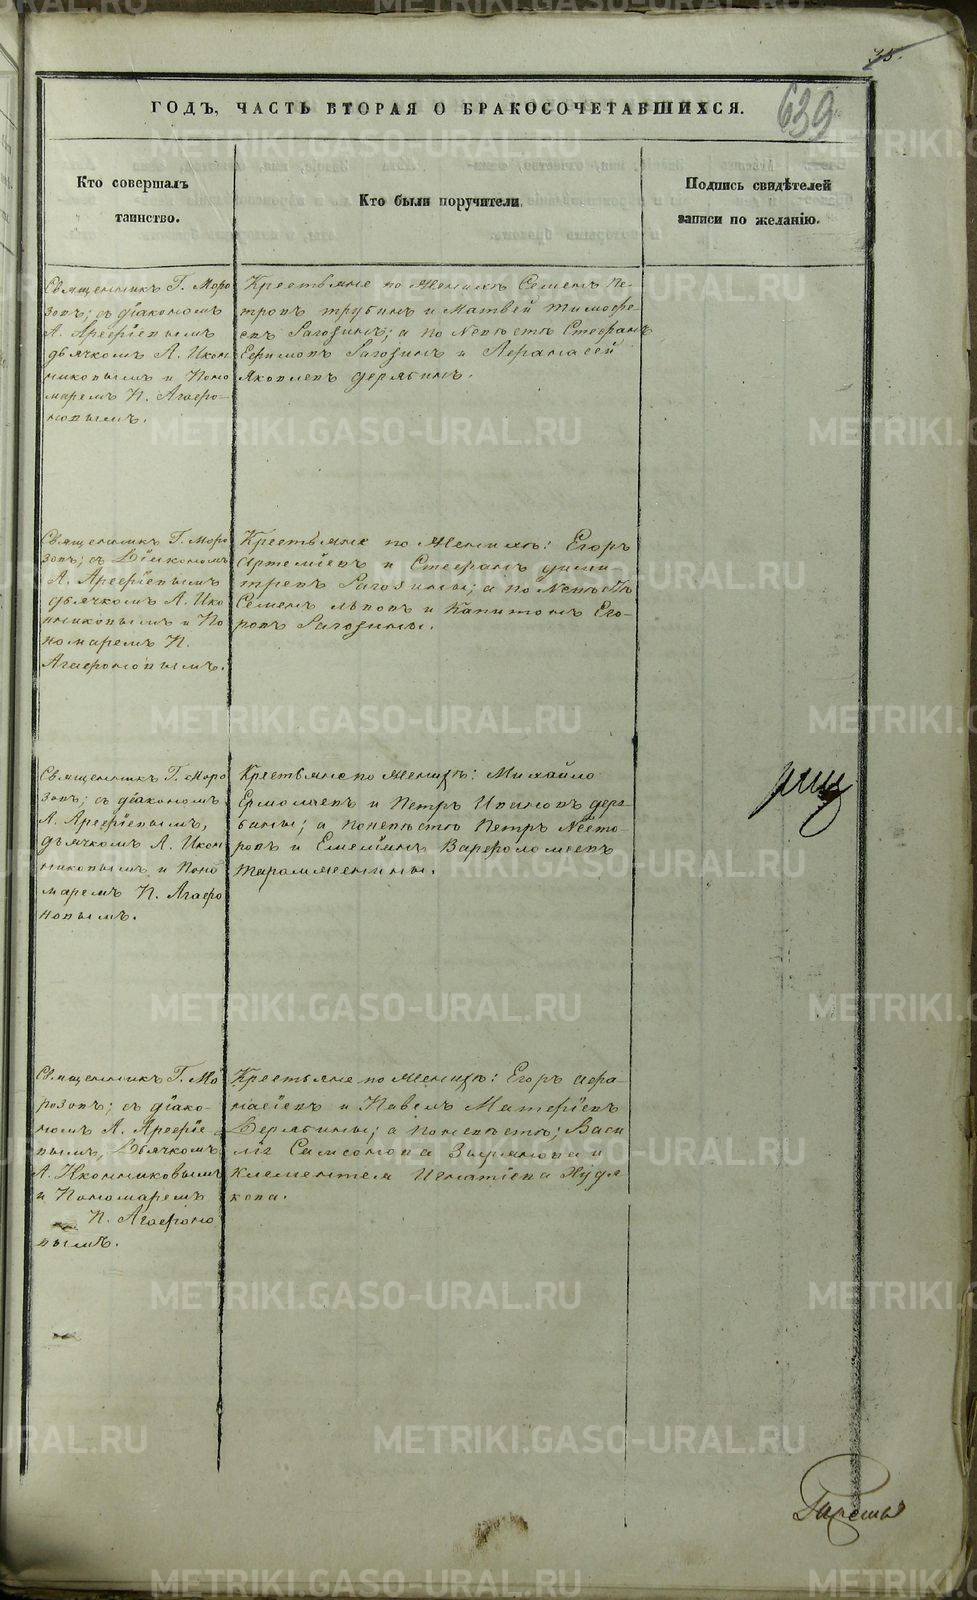 35.
639
ГОДЪ, ЧАСТЬ ВТОРАЯ О БРАКОСОЧЕТАВШИХСЯ.
Кто совершалъ
таинство.
Кто были поручители
Подпись свидѣтелей
записи по желанію.
Священникъ Г. Моро
зовъ; съ діакономъ
А. Арефіевымъ
дьячкомъ А. Икон
никовымъ и Поно
маремъ П. Агафо-
новымъ.
Крестьяне по женихѣ Семенъ Пе-
тровъ Трубинъ и Матвей Тимофе-
евъ Рагозинъ; а по невѣстѣ Стефанъ
Ефимовъ Рагозинъ и Афанасей
Яковлевъ Дерябинъ.
Священникъ Г. Моро
зовъ; съ Діакономъ
А. Арефіевымъ
дьячкомъ А. Ико
нниковымъ и По
номаремъ П.
Агафоновымъ.
Крестьяне по женихѣ: Егоръ
Артеміевъ и Стефанъ Дими
тревъ Рагозины; а по невѣстѣ
Семенъ Львовъ и Капитонъ Его-
ровъ Рагозины.
Священникъ Г. Моро
зовъ; съ діакономъ
А. Арефіевымъ,
дьячкомъ А. Икон
никовымъ и Поно
маремъ П. Агафо
новымъ.
Крестьяне по женихѣ: Михайло
Ермолаевъ и Петръ Ивановъ Деря-
бины; а поневѣстѣ Петръ Несто-
ровъ и Емелианъ Варфоломеевъ
Таромженины.
Священникъ Г. Мо
розовъ; съ діако-
номъ А. Арефіе-
вымъ, Дьячкомъ
А. Иконниковымъ
и Пономаремъ
П. Агафоно
вымъ.
Крестьяне по женихѣ: Егоръ Афа-
насіевъ и Павелъ Матфіевъ
Дерябины; а поневѣстѣ; Васи
лій Самсонова Зырянова и
Климентея Игнатіева Худя
кова.
METRIKI.GASO-URAL.RU